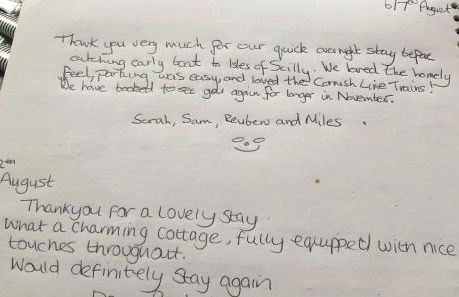 6/7th August
Thank you very much for our quick overnight stay before
catching early boat to Isles of Scilly. We loved the homely
feel, parking was easy, and loved the Cornish Line Trains!
We have booked to see you again for longer in November.
Sarah, Sam, Reuben and Miles.
August
Thankyou for a lovely stay.
What a charming cottage, fully equipped with nice
touches throughout.
Would definitely stay again